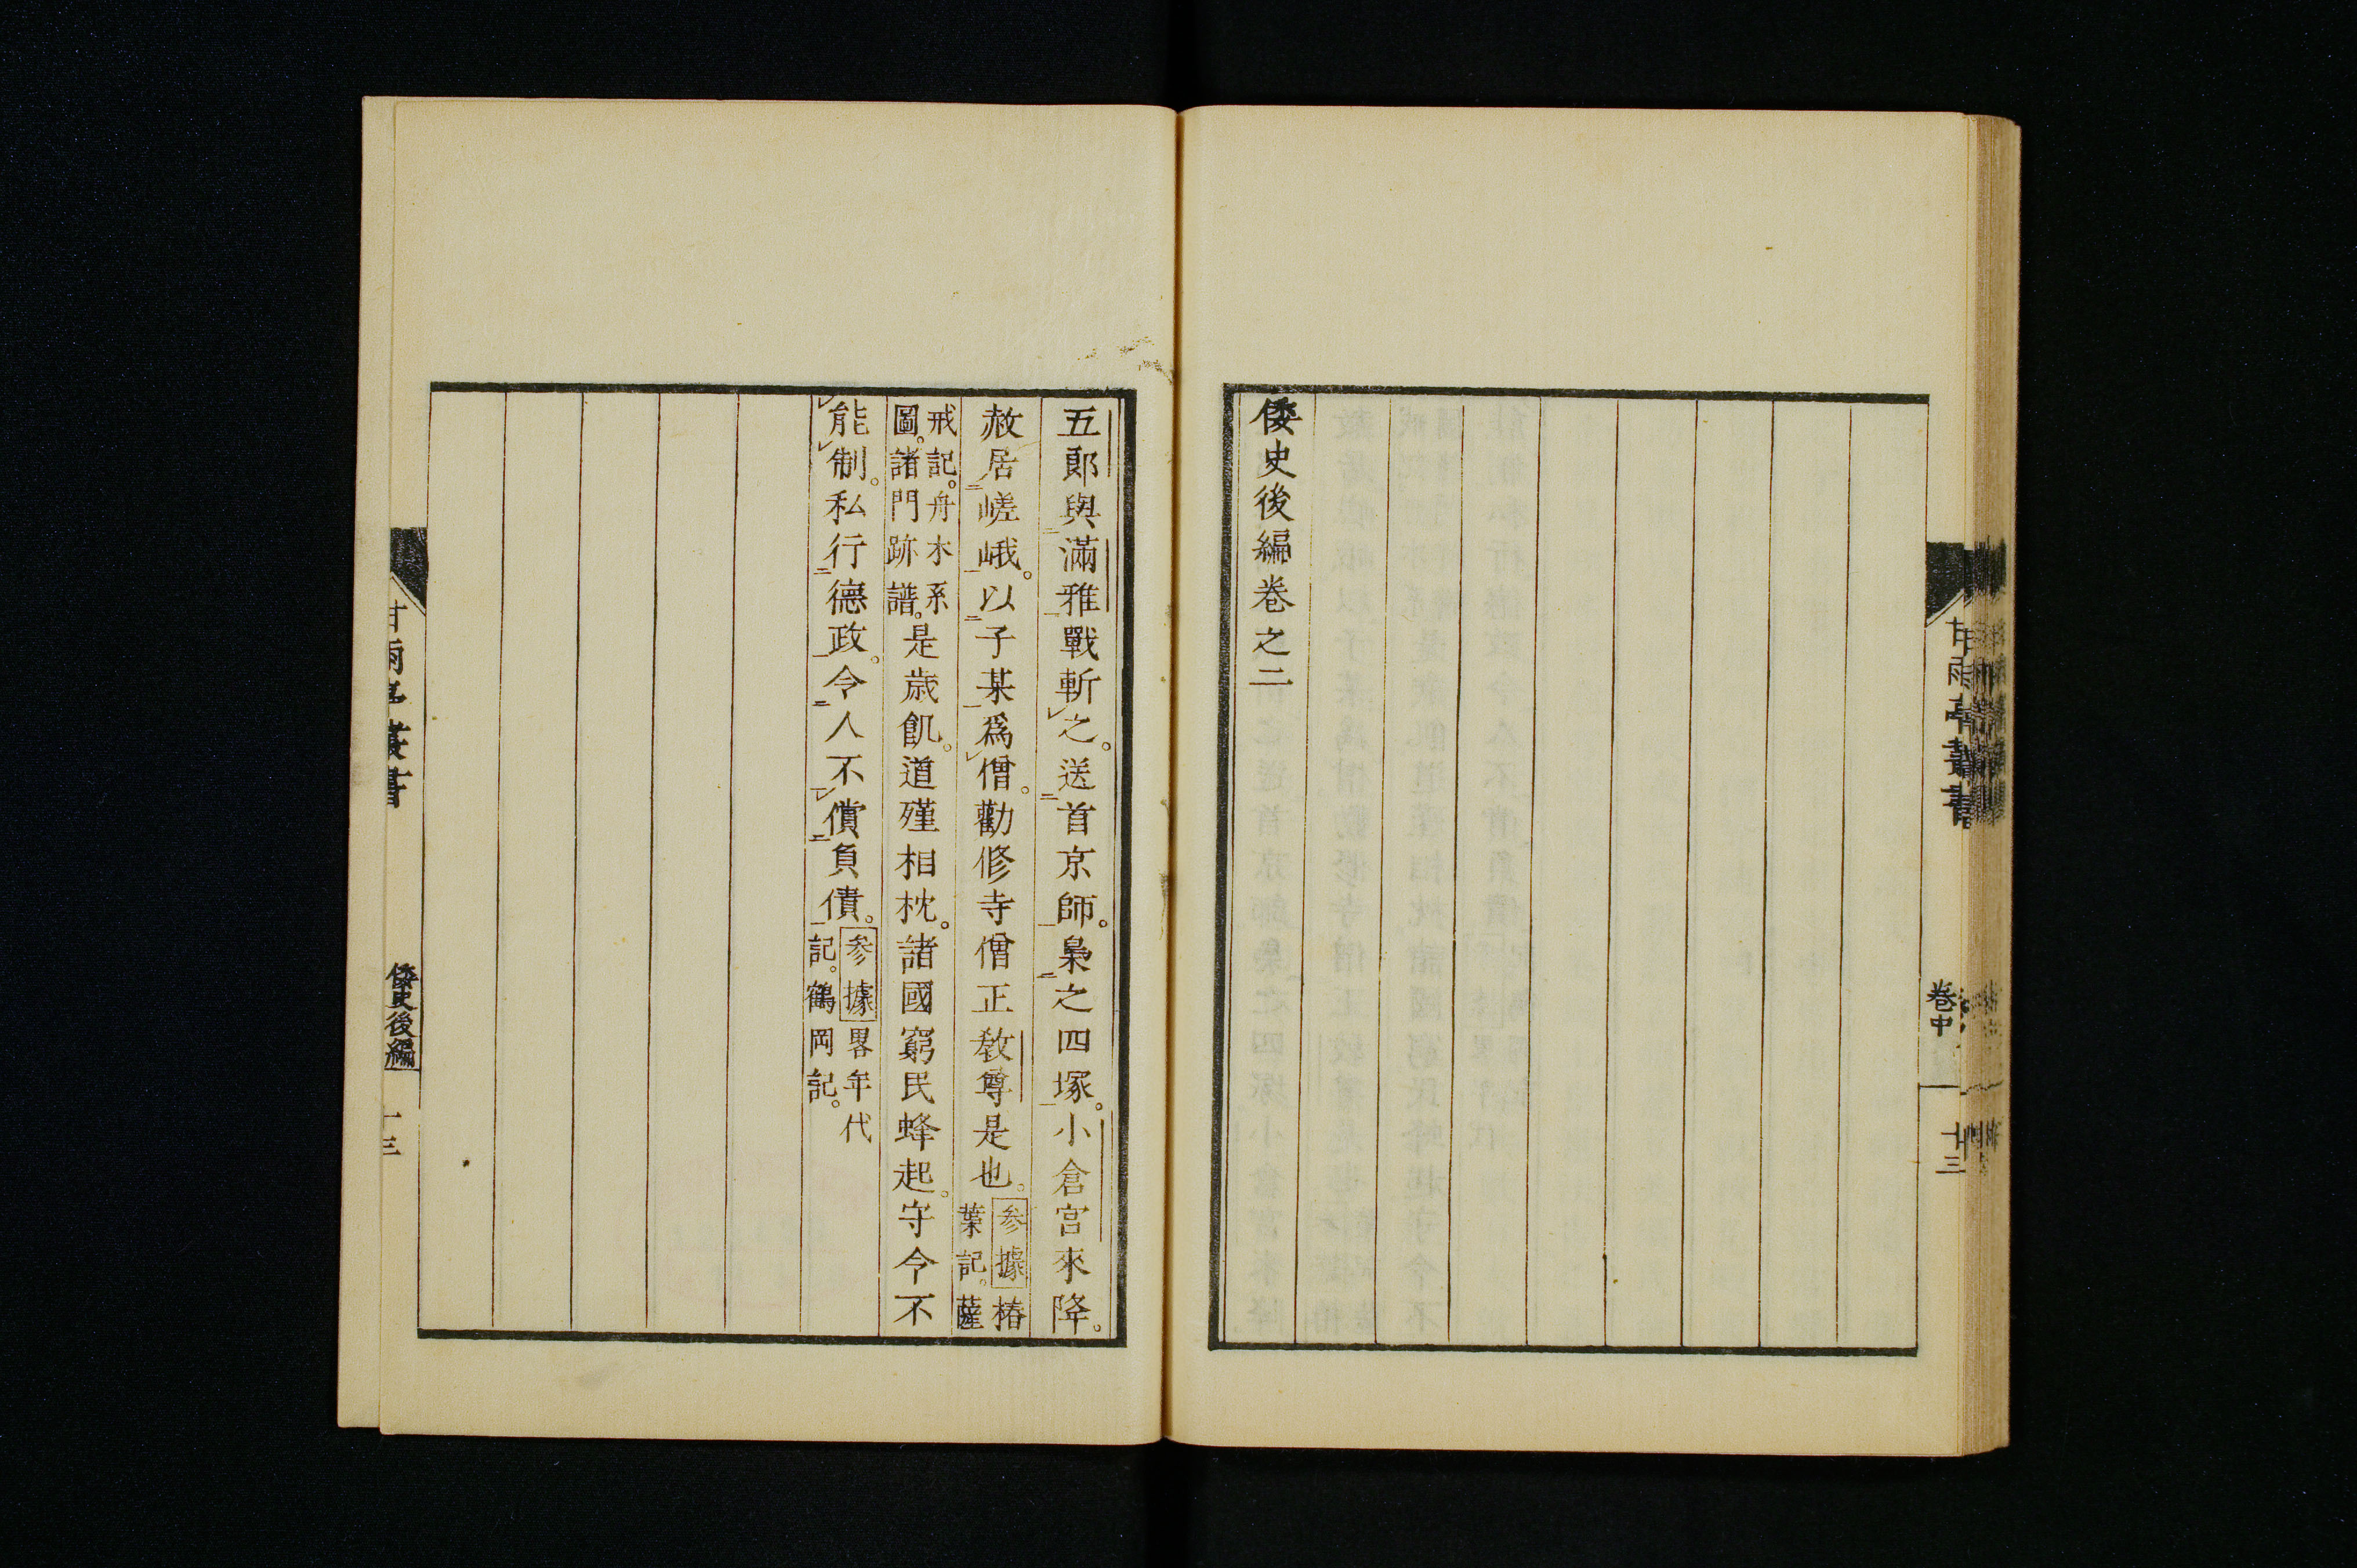 甘雨亭叢書
卷中
十三
倭史後編卷之二
五郎與滿雅戰斬之。送首京師。梟之四塚。小倉宮來降。
赦居嵯峨。以子某爲僧。勸修寺僧正教尊是也。参據椿葉記。薩
戒記。舟木系圖。諸門跡譜。是歳飢。道殣相枕。諸國窮民蜂起。守令不
能制。私行德政。令人不償負債。参據畧年代記。鶴岡記。
甘雨亭叢書
倭史後編
十三